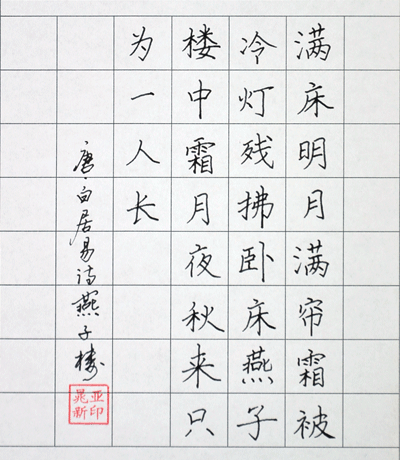 满床明月满帘霜被
冷灯残拂卧床燕子
楼中霜月夜秋来只
为一人长
唐·白居易诗燕子楼
晁亚
新印